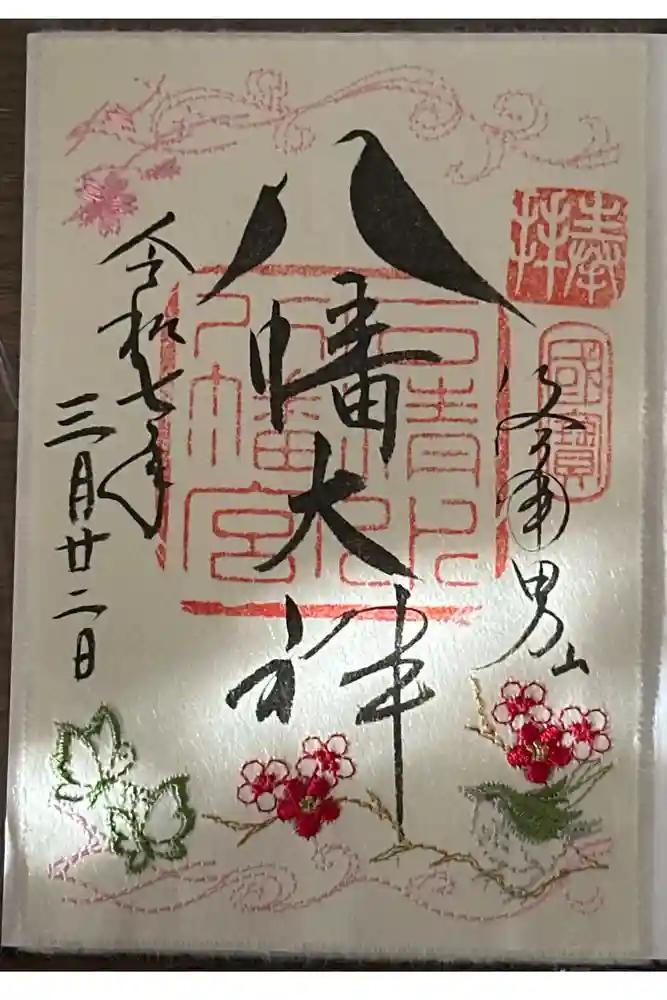 奉拝
國寶
男山
八幡大神
石清水
八幡宮
令和七年
三月廿二日